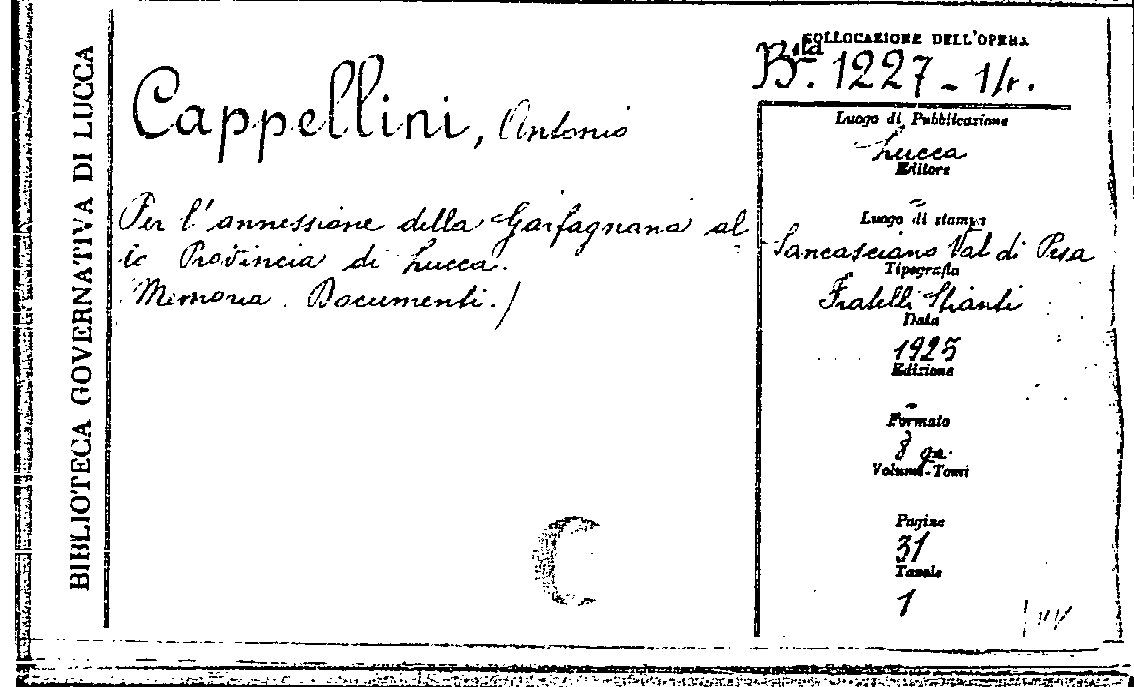 BIBLIOTECA GOVERNATIVA DI LUCCA
Cappellini, Antonio
Per l'annessione della Garfagnana al
la Provincia di Lucca.
Memoria. Documenti./
COLLOCAZIONE DELL'OPERA
B.ta 1227 - 1/r.
Luogo di Pubblicazione
Lucca
Editore
–
Luogo di stampa
Sancasciano Val di Pesa
Tipografia
Fratelli Stianti
Data
1925
Edizione
–
Formato
8 gr.
Volumi-Tomi
Pagine
31
Tavole
1
C